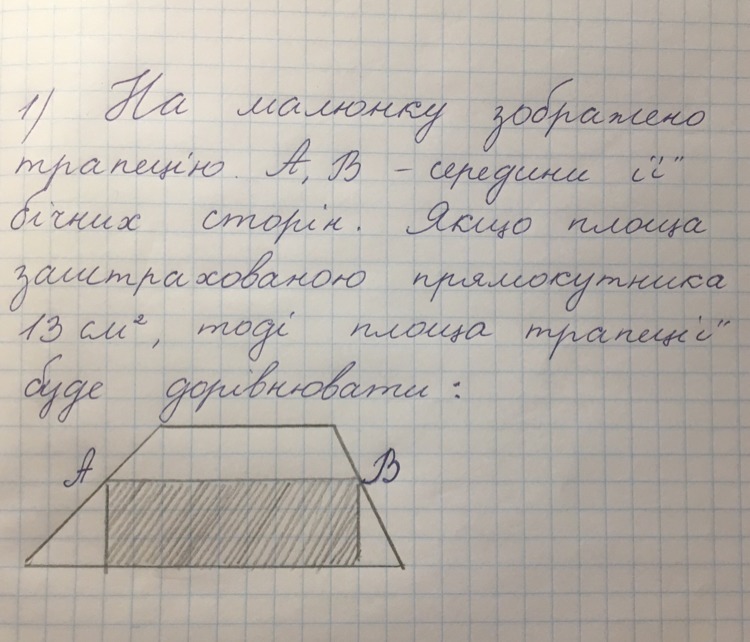 1) На малюнку зображено
трапецію. А, В – середини її
бічних сторін. Якщо площа
заштрахованою прямокутника
13 см², тоді площа трапеції
буде дорівнювати:
А
В